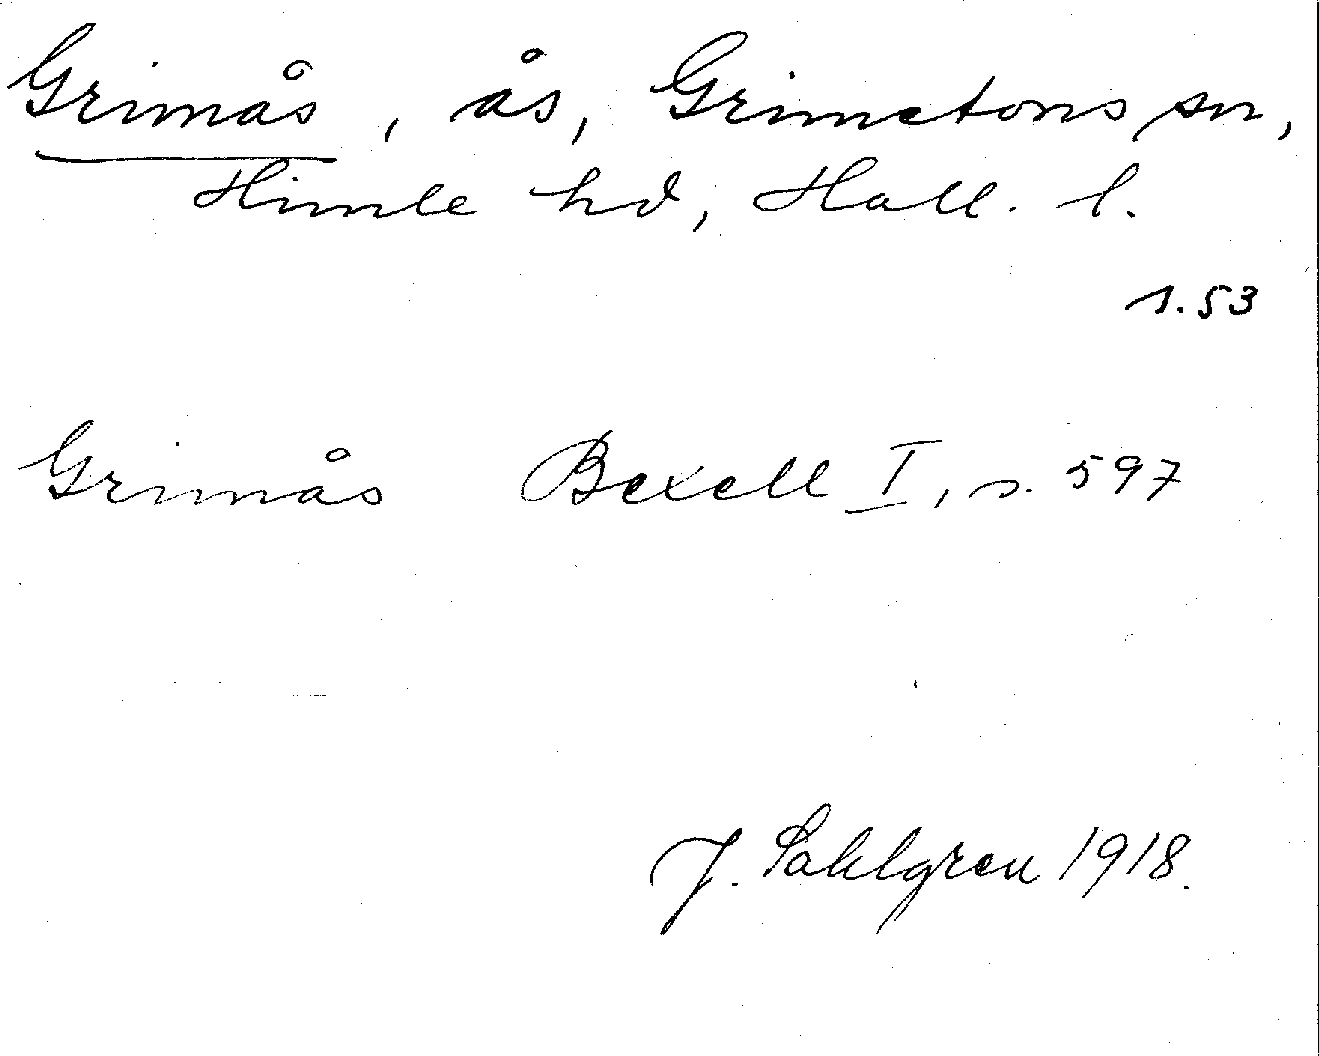 Grimås, ås, Grimetons sn,
Himle hd, Hall. l.
s. 53
Grimås Bexell I, s. 597
J. Sahlgren 1918.